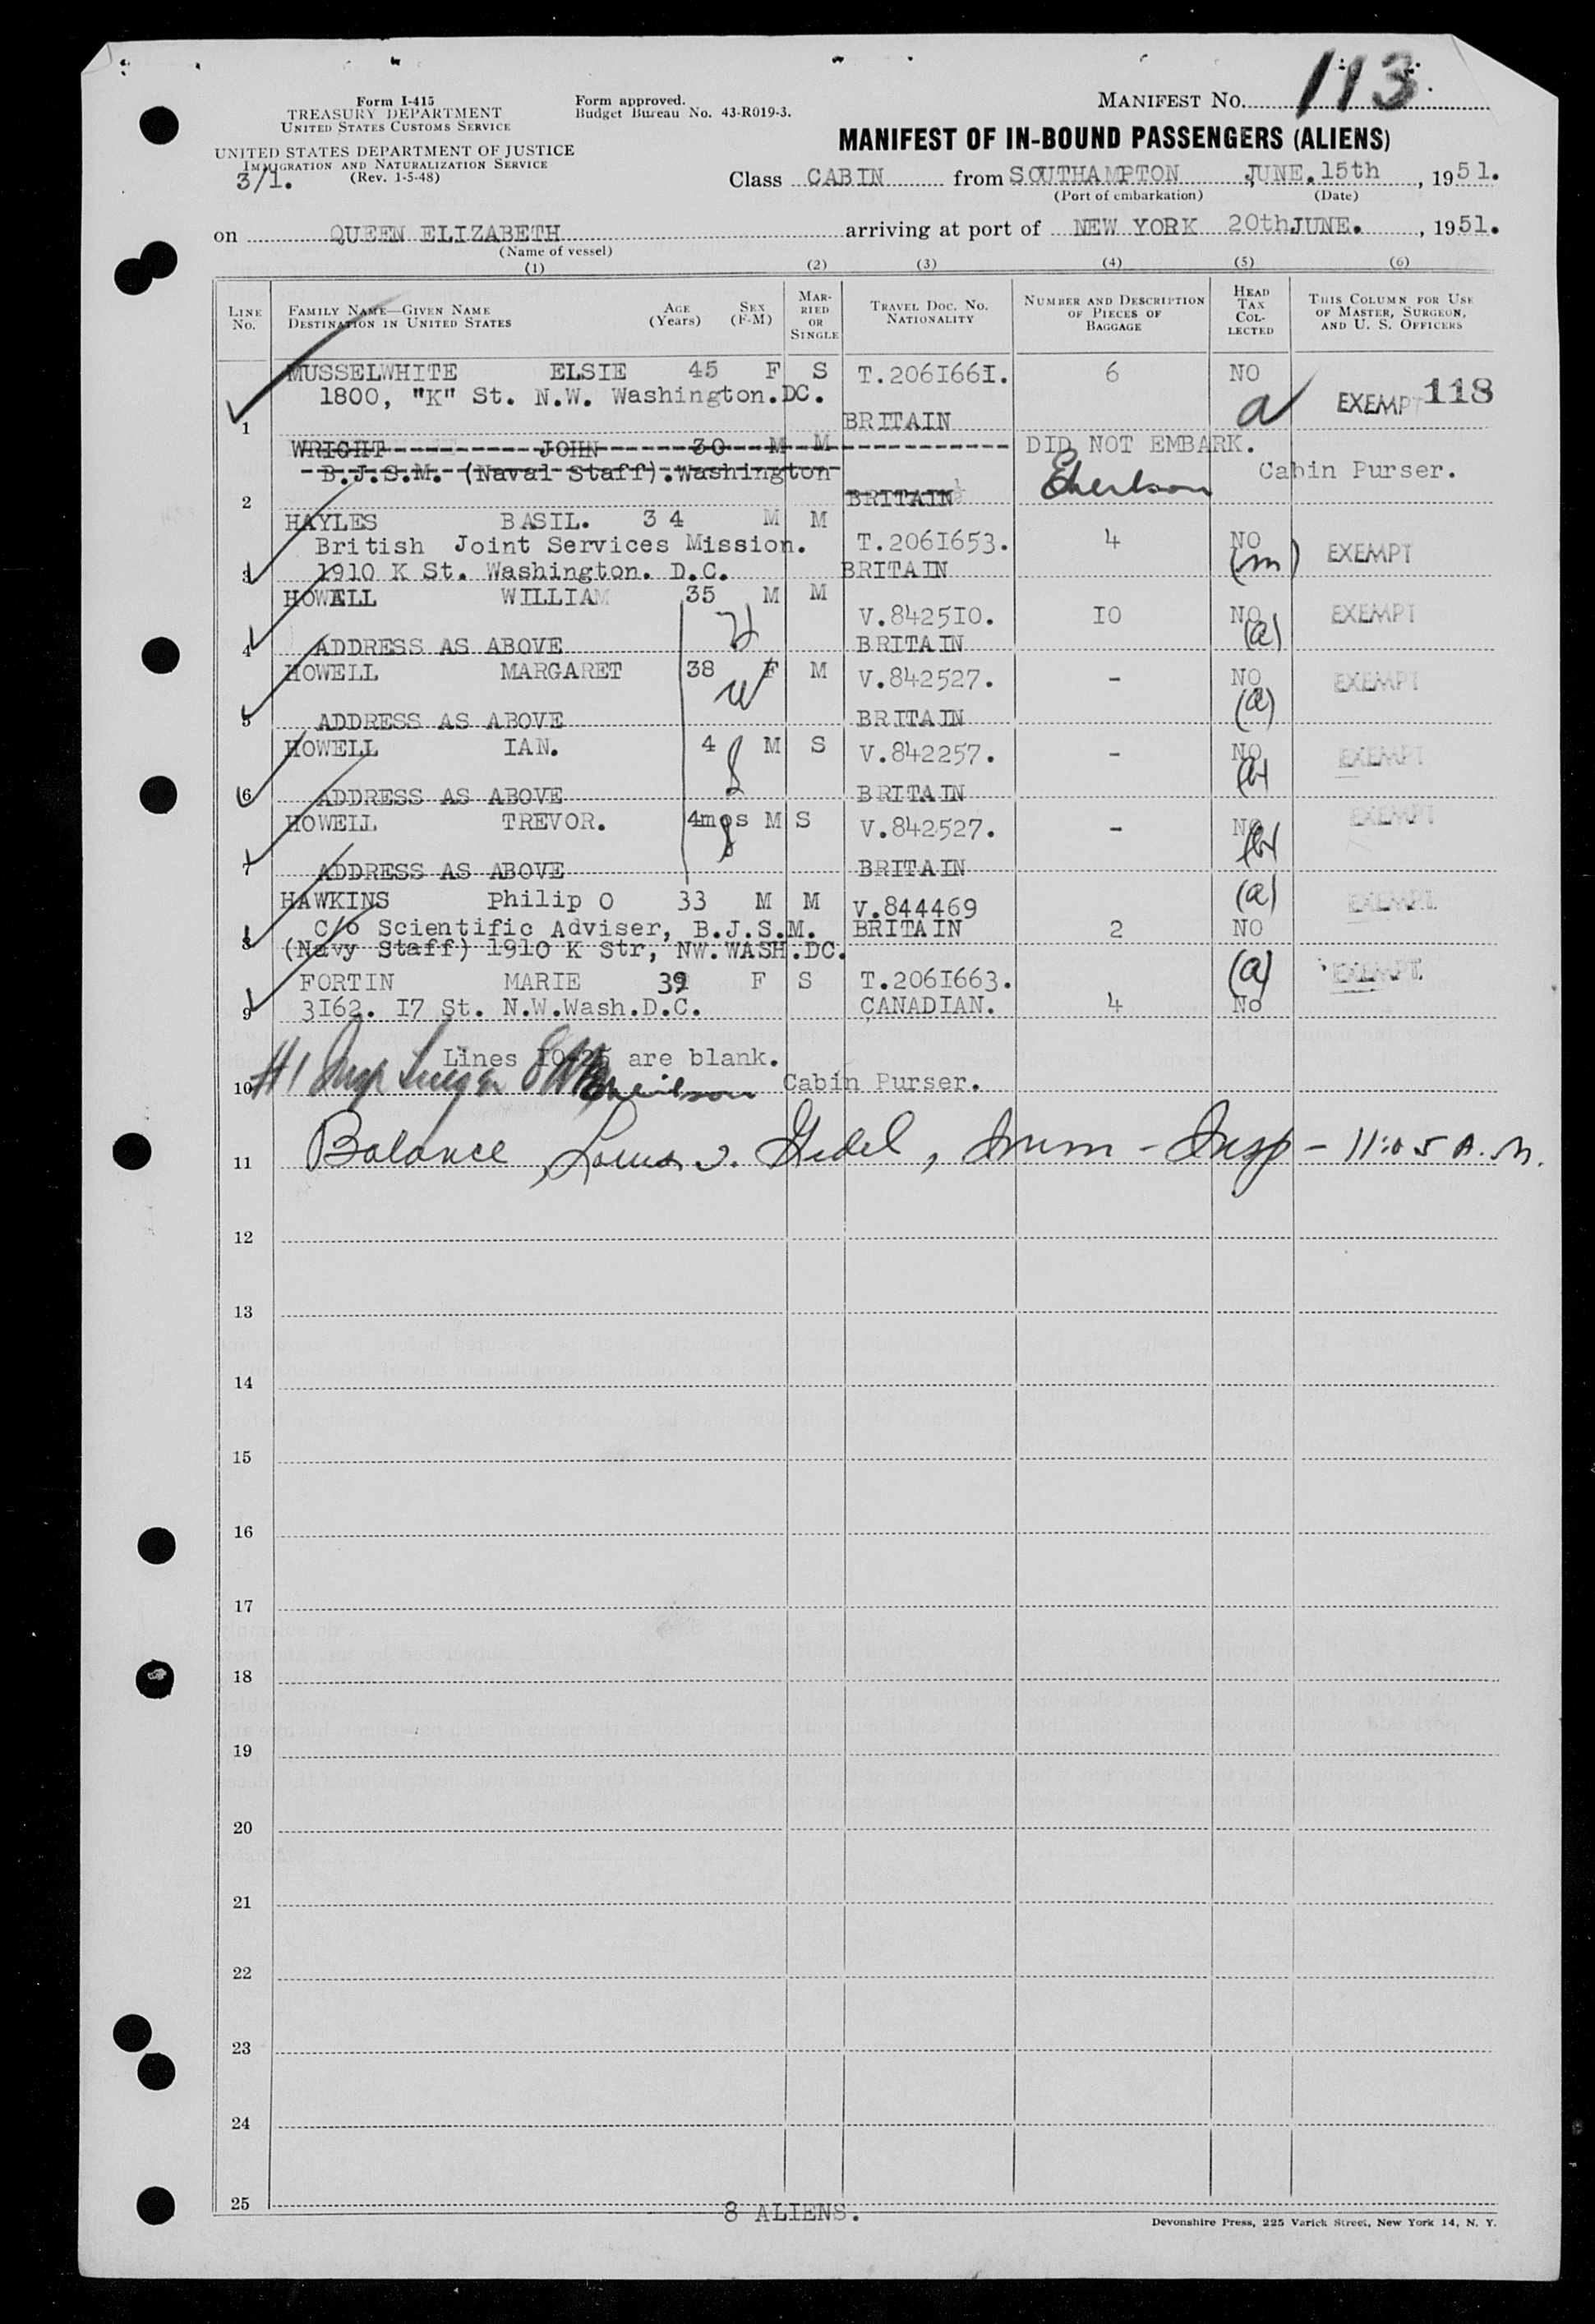 113.
Form I-415
TREASURY DEPARTMENT
UNITED STATES CUSTOMS SERVICE
UNITED STATES DEPARTMENT OF JUSTICE
IMMIGRATION AND NATURALIZATION SERVICE
(Rev. 1-5-48)
3/1.
Form approved.
Budget Bureau No. 43-R019-3.
MANIFEST NO.
MANIFEST OF IN-BOUND PASSENGERS (ALIENS)
Class CABIN from SOUTHAMPTON JUNE.15th, 1951.
(Port of embarkation) (Date)
on QUEEN ELIZABETH arriving at port of NEW YORK 20thJUNE., 1951.
(Name of vessel)
(1) (2) (3) (4) (5) (6)
LINE NO.
FAMILY NAME—GIVEN NAME
DESTINATION IN UNITED STATES
AGE (Years)
SEX (F-M)
MARRIED OR SINGLE
TRAVEL DOC. NO. NATIONALITY
NUMBER AND DESCRIPTION OF PIECES OF BAGGAGE
HEAD TAX COLLECTED
THIS COLUMN FOR USE OF MASTER, SURGEON, AND U. S. OFFICERS
MUSSELWHITE ELSIE 45 F S T.2061661. 6 NO
1800, "K" St. N.W. Washington.DC. a EXEMPT 118
1 BRITAIN
WRIGHT JOHN 30 M M DID NOT EMBARK.
B.J.S.M. (Naval Staff).Washington Cabin Purser.
2 BRITAIN
HAYLES BASIL. 34 M M
British Joint Services Mission. T.2061653. 4 NO (m) EXEMPT
3 1910 K St. Washington. D.C. BRITAIN
HOWELL WILLIAM 35 M M
V.842510. 10 NO (a) EXEMPT
4 ADDRESS AS ABOVE BRITAIN
HOWELL MARGARET 38 F M V.842527. - NO (a) EXEMPT
5 ADDRESS AS ABOVE BRITAIN
HOWELL IAN. 4 M S V.842257. - NO EXEMPT
6 ADDRESS AS ABOVE BRITAIN
HOWELL TREVOR. 4mos M S V.842527. - NO EXEMPT
7 ADDRESS AS ABOVE BRITAIN
HAWKINS Philip O 33 M M V.844469 (a) EXEMPT
C/o Scientific Adviser, B.J.S.M. BRITAIN 2 NO
8 (Navy Staff) 1910 K Str, NW.WASH.DC.
FORTIN MARIE 39 F S T.2061663. (a) EXEMPT
9 3162. 17 St. N.W.Wash.D.C. CANADIAN. 4 No
Lines 10-25 are blank.
10 #1 Insp Cabin Purser.
11 Balance, Louis Imm - Insp - 11:05 A.M.
12
13
14
15
16
17
18
19
20
21
22
23
24
25
8 ALIENS.
Devonshire Press, 225 Varick Street, New York 14, N. Y.